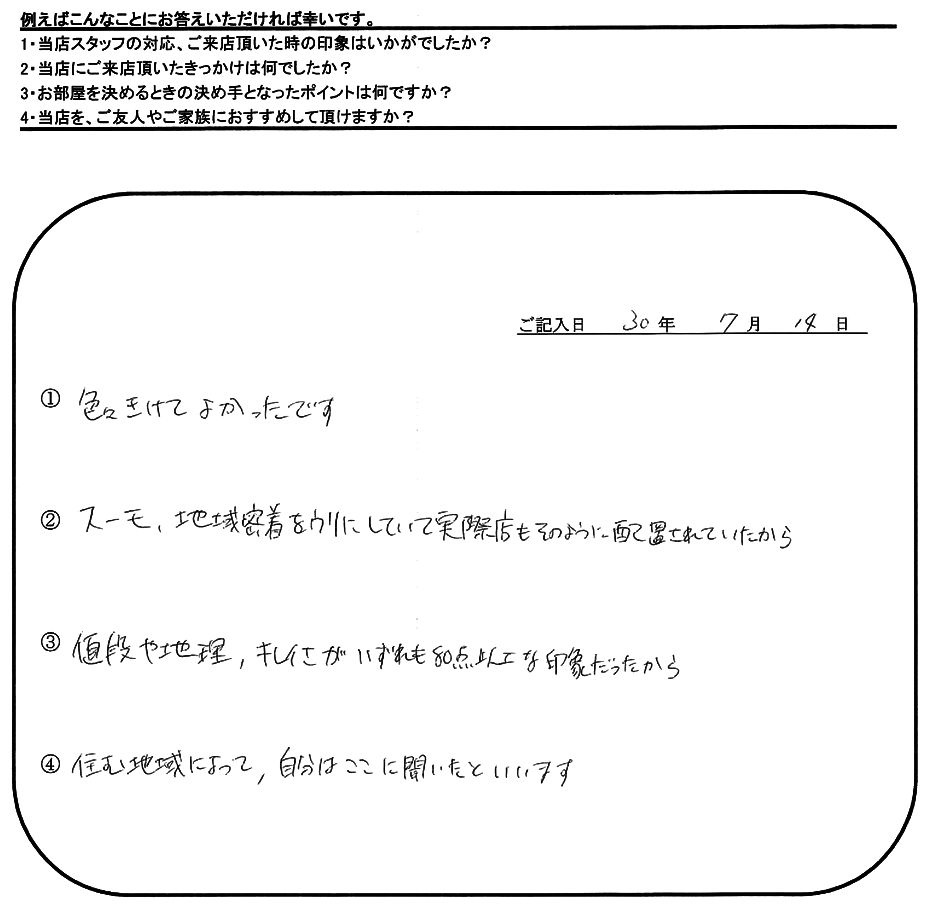 例えばこんなことにお答えいただければ幸いです。
1・当店スタッフの対応、ご来店頂いた時の印象はいかがでしたか？
2・当店にご来店頂いたきっかけは何でしたか？
3・お部屋を決めるときの決め手となったポイントは何ですか？
4・当店を、ご友人やご家族におすすめして頂けますか？
ご記入日 30年 7月 14日
① 色々きけてよかったです
② スーモ、地域密着をウリにしていて実際店もそのように配置されていたから
③ 値段や地理，キレイさがいずれも80点以上な印象だったから
④ 住む地域によって，自分はここに聞いたといいます